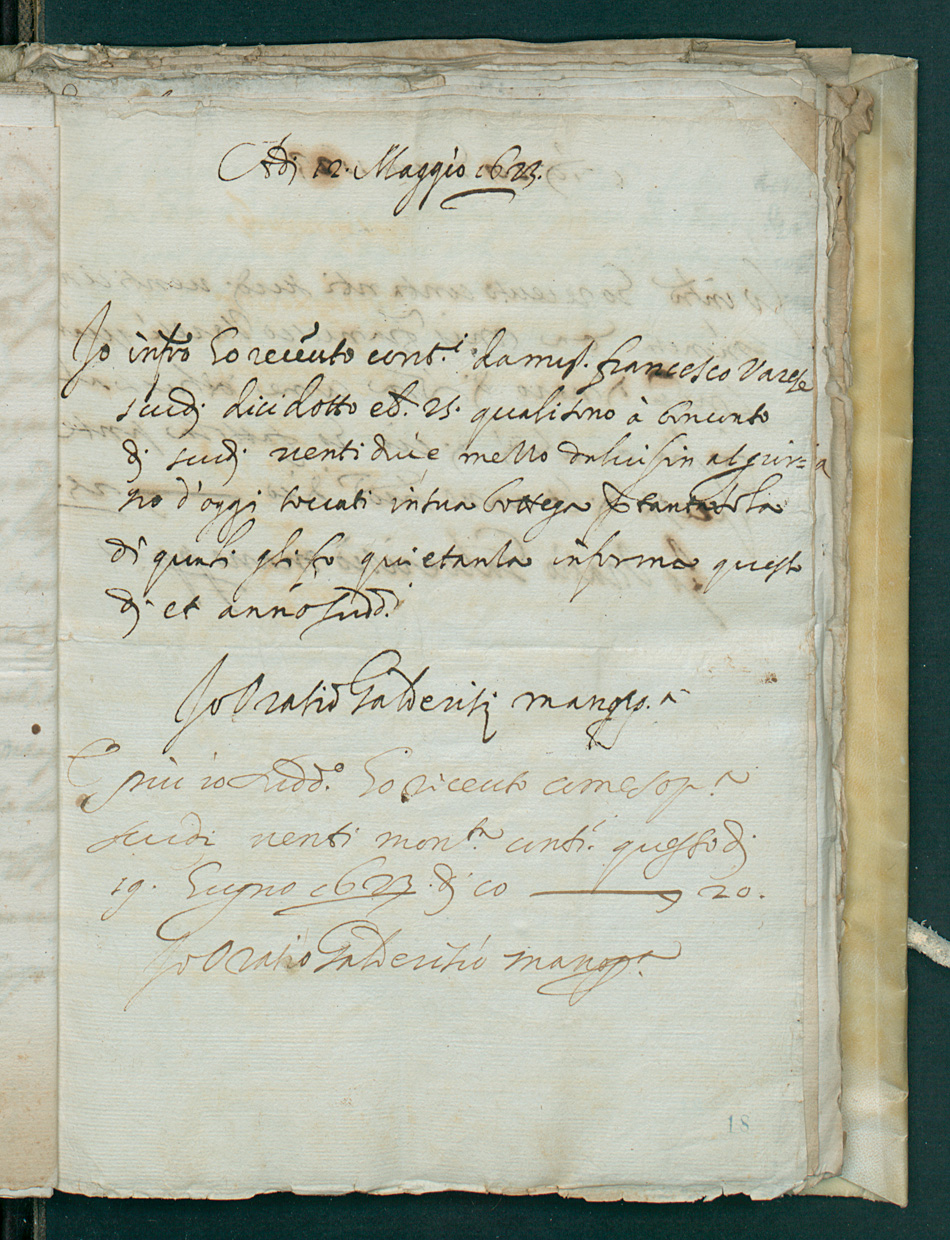 Adi 12. Maggio 1623.
Io infro ho receuto cont.i da mes. francesco Varese
scudi dicidotto e b. 25. quali sono à bonconto
di scudi venti dui e mezzo
d'oggi toccati in sua bottega
di quali gli fo quietanza in forma questo
di et anno sudd.
Io Oratio Galderisi mano pp.a
E più io sudd.o ho riceuto come sop.a
scudi venti mon.ta conti. questo di
19. Giugno 1623. di co 20.
Io Oratio Galderisio mano pp.a
18